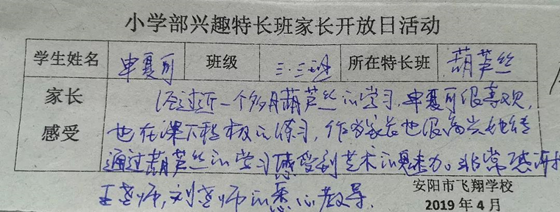 小学部兴趣特长班家长开放日活动
学生姓名 申夏可 班级 三.三班 所在特长班 葫芦丝
家长感受
经过近一个多月葫芦丝的学习,申夏可很喜欢,
也在课下积极的练习,作为家长也很高兴她能
通过葫芦丝的学习感受到艺术的魅力。非常感谢
王老师,刘老师的悉心教导.
安阳市飞翔学校
2019年4月